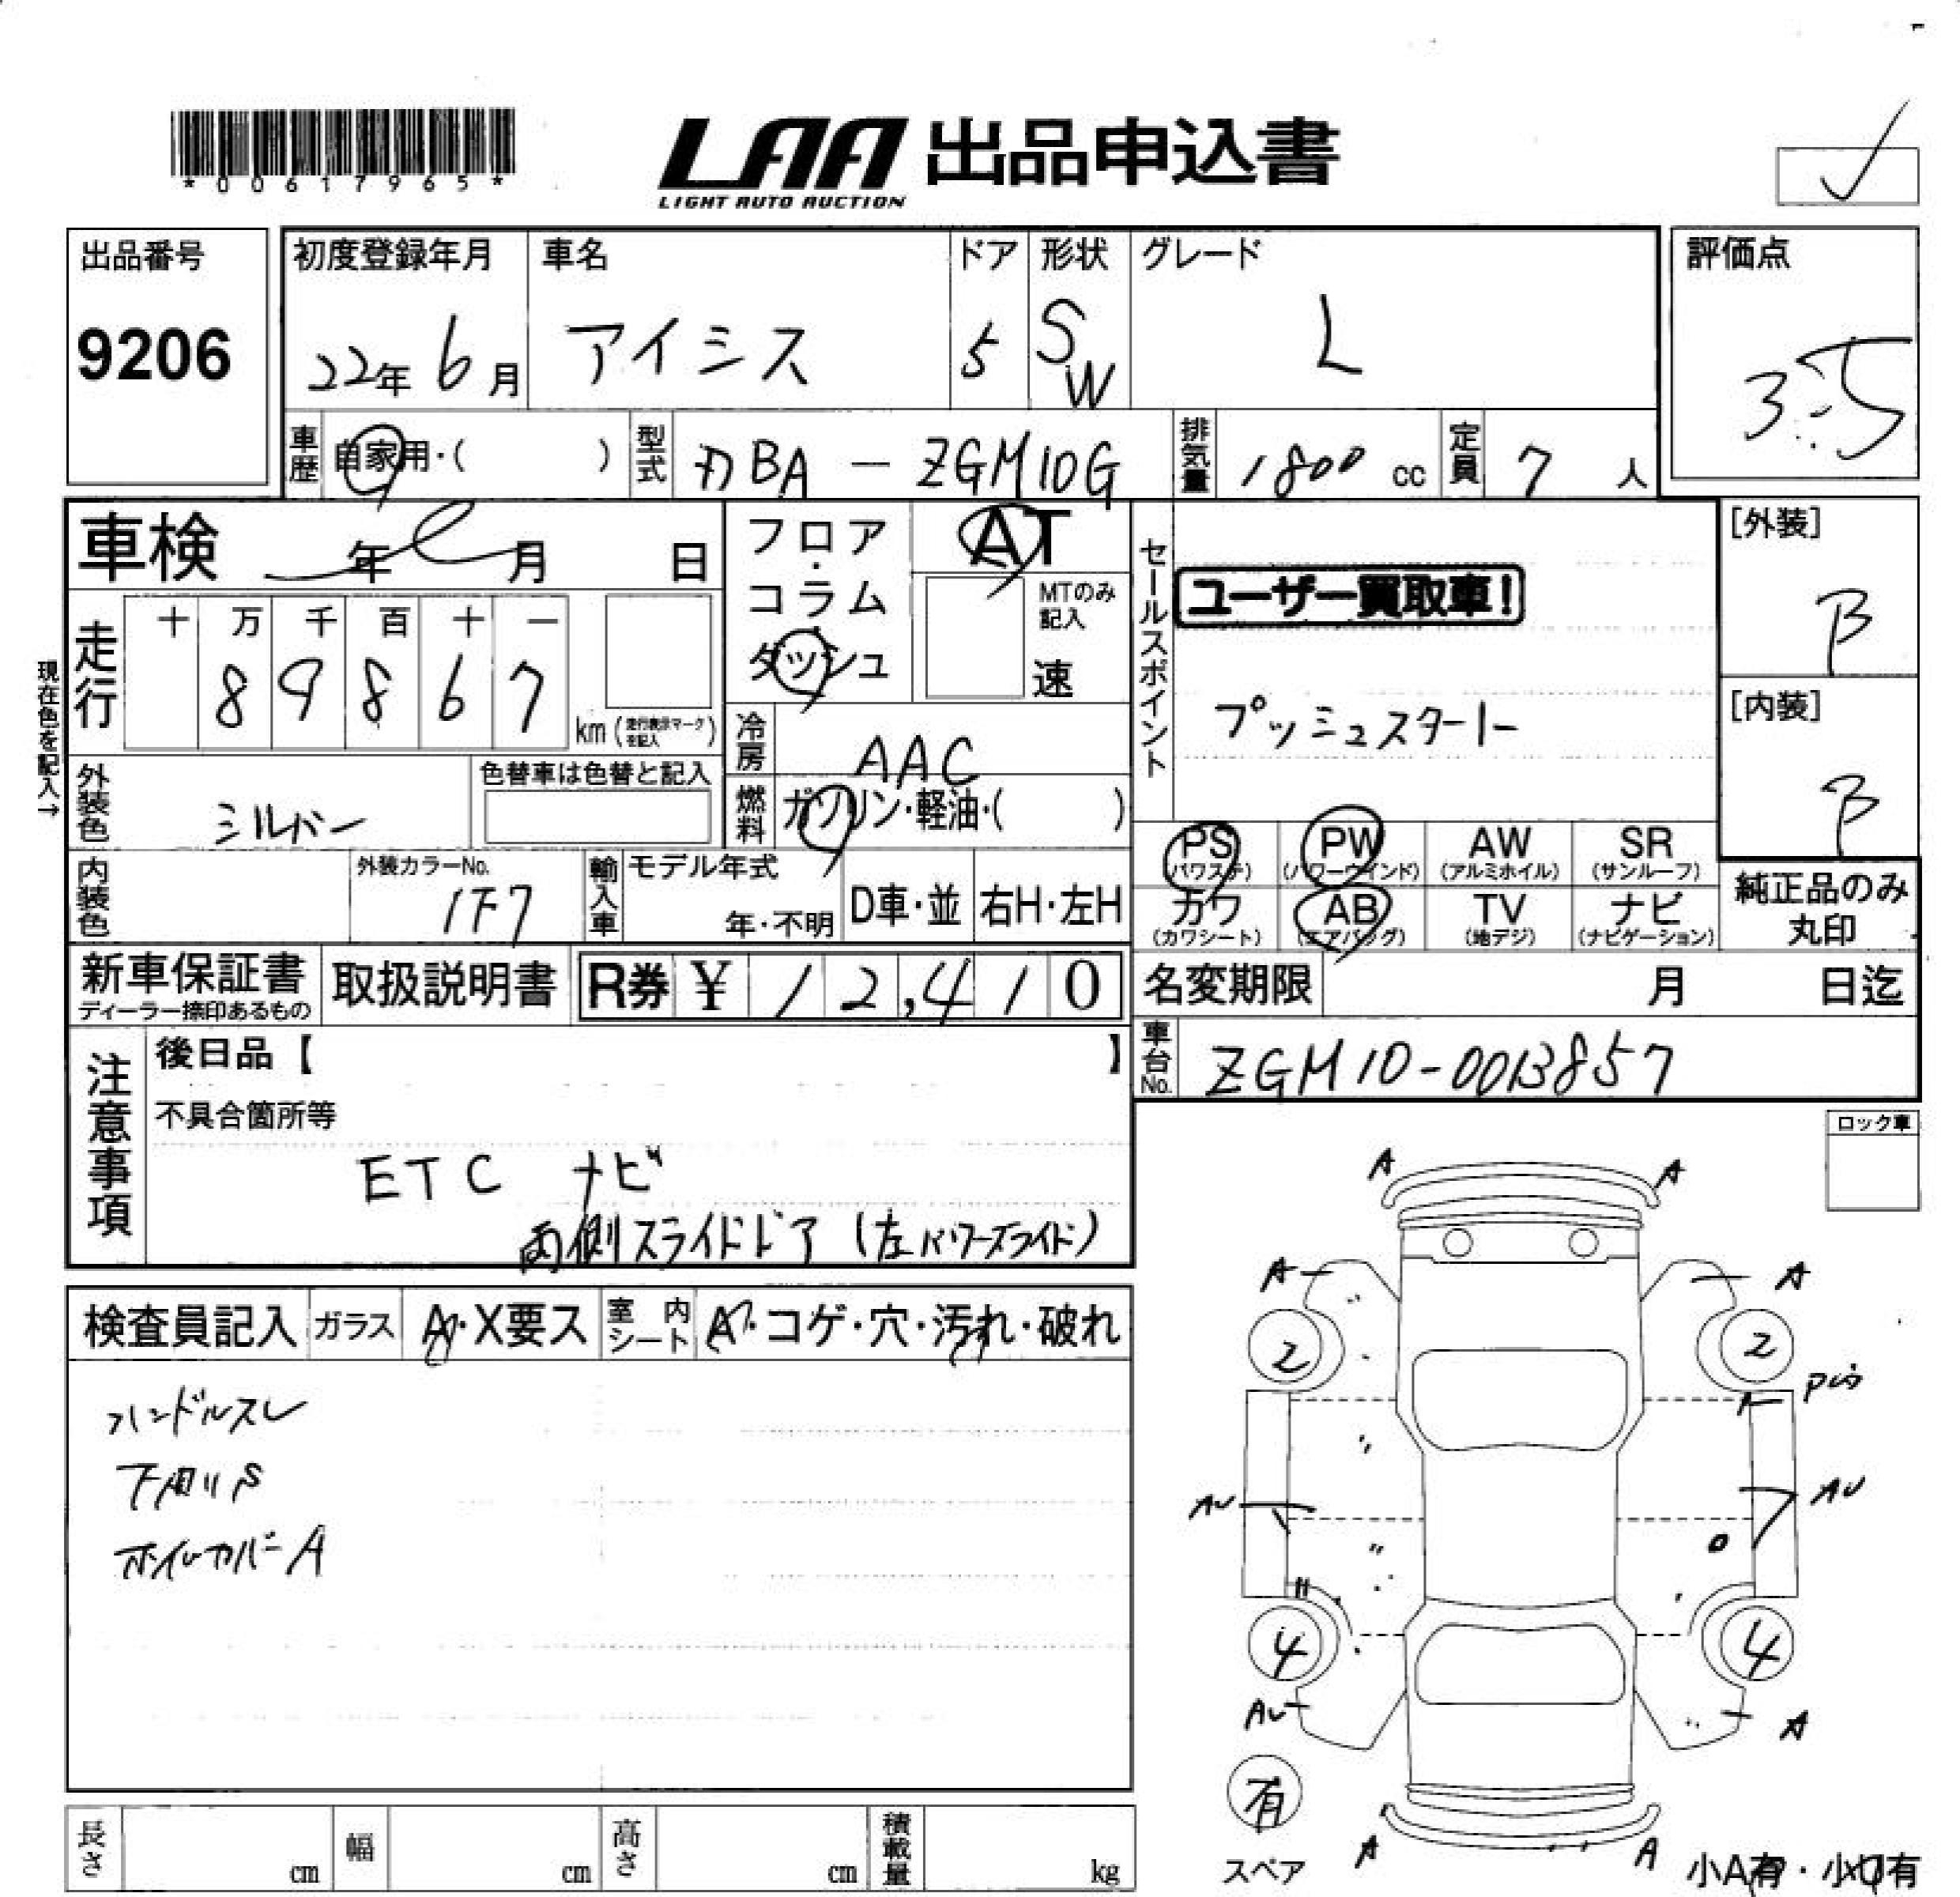 *00617965*
LAA 出品申込書
LIGHT AUTO AUCTION
出品番号
9206
初度登録年月
22年6月
車名
アイシス
ドア
5
形状
SW
グレード
L
評価点
3.5
車歴
自家用・( )
型式
DBA - ZGM10G
排気量
1800 cc
定員
7 人
車検 年 月 日
フロア・コラム・ダッシュ
AT
MTのみ記入
速
セールスポイント
ユーザー買取車!
プッシュスタート
[外装]
B
[内装]
B
現在色を記入→
走行
十 万 千 百 十 一
8 9 8 6 7
km (走行表示マークを記入)
冷房
AAC
外装色
シルバー
色替車は色替と記入
燃料
ガソリン・軽油・( )
PS (パワステ)
PW (パワーウインド)
AW (アルミホイル)
SR (サンルーフ)
カワ (カワシート)
AB (エアバッグ)
TV (地デジ)
ナビ (ナビゲーション)
純正品のみ丸印
内装色
外装カラーNo.
1F7
輸入車
モデル年式
年・不明
D車・並
右H・左H
新車保証書
ディーラー捺印あるもの
取扱説明書
R券 ¥ 12,410
名変期限 月 日迄
車台No.
ZGM10-0013857
注意事項
後日品【 】
不具合箇所等
ETC ナビ
両側スライドドア (左パワースライド)
ロック車
検査員記入
ガラス
A・X要ス
室内シート
A・コゲ・穴・汚れ・破れ
ハンドルスレ
下廻りS
ホイルカバーA
A A
A A
2 2
AU AU
4 4
AU A
有
スペア
A A
小A有・小U有
長さ cm
幅 cm
高さ cm
積載量 kg